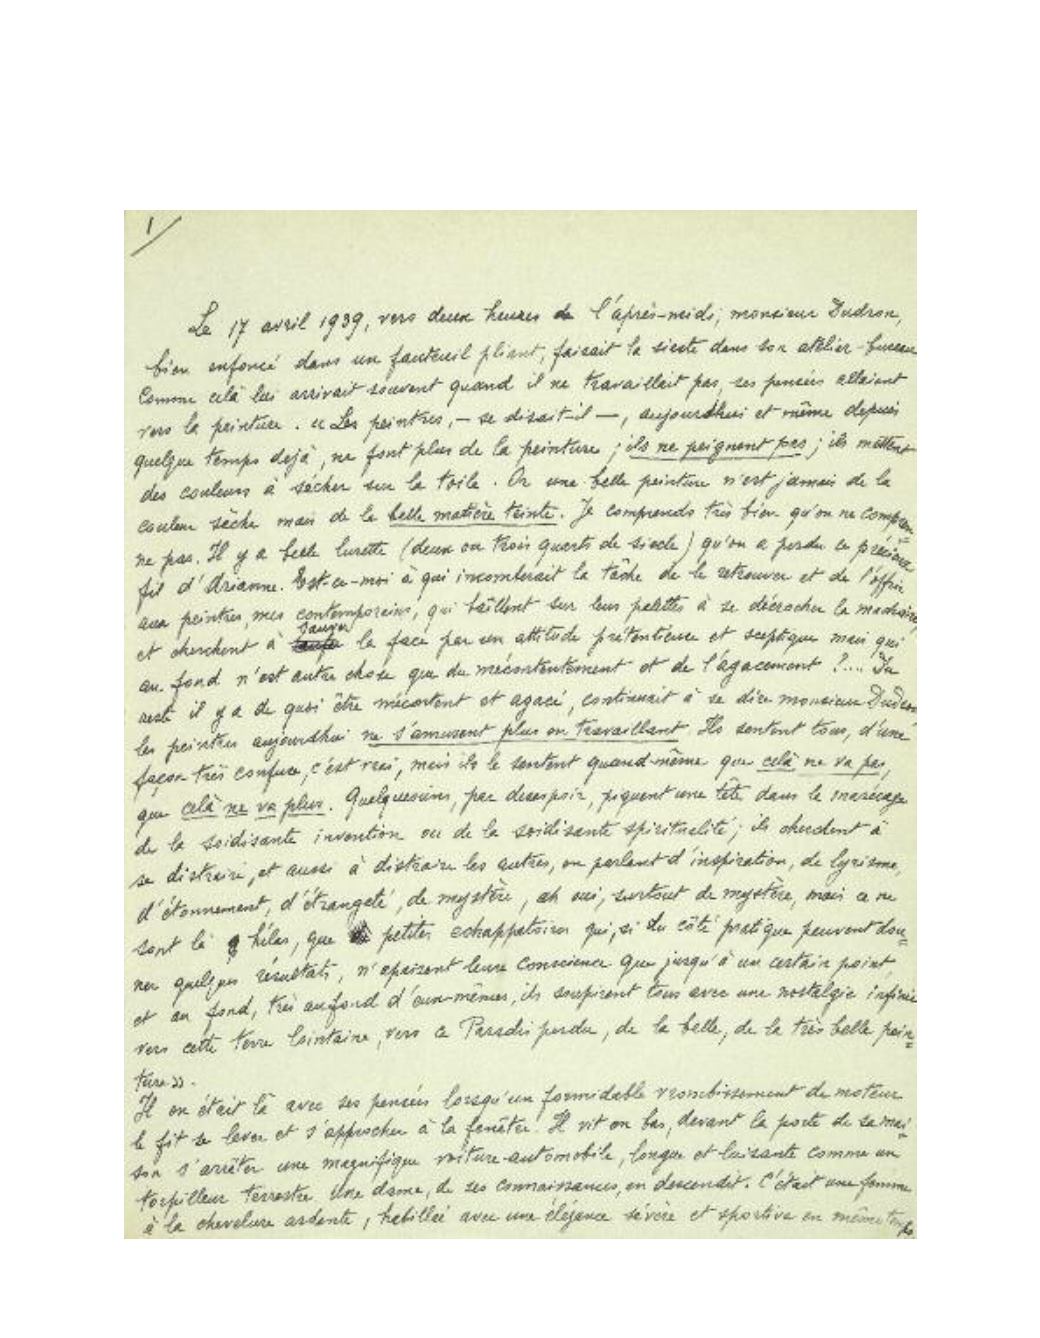 1
Le 17 avril 1939, vers deux heures de l'après-midi, monsieur Dudron,
bien enfoncé dans un fauteuil pliant, faisait la sieste dans son atelier-bureau
Comme celà lui arrivait souvent quand il ne travaillait pas, ses pensées allaient
vers la peinture. « Les peintres, — se disait-il —, aujourdhui et même depuis
quelque temps dejà, ne font plus de la peinture ; ils ne peignent pas ; ils mettent
des couleurs à sècher sur la toile. Or une belle peinture n'est jamais de la
couleur sèche mais de la belle matière teinte. Je comprends très bien qu'on ne compren
ne pas. Il y a belle lurette (deux ou trois quarts de siecle) qu'on a perdu ce précieux
fil d'Arianne. Est-ce-moi à qui incomberait la tâche de le retrouver et de l'offrir
aux peintres, mes contemporains, qui bâillent sur leus palettes à se décrocher la machoire,
et cherchent à sauver la face par un attitude prétentieuse et sceptique mais qui
au fond n'est autre chose que du mécontentement et de l'agacement ?.... Du
reste il y a de quoi être mécontent et agacé, continuait à se dire monsieur Dudron,
les peintres aujourdhui ne s'amusent plus en travaillant. Ils sentent tous, d'une
façon très confuse, c'est vrai, mais ils le sentent quand-même que celà ne va pas,
que celà ne va plus. Quelquesuns, par desespoir, piquent une tête dans le marécage
de la soidisante invention ou de la soidisante spiritualité ; ils cherchent à
se distraire, et aussi à distraire les autres, en parlant d'inspiration, de lyrisme,
d'étonnement, d'étrangeté, de mystère, ah oui, surtout de mystère, mais ce ne
sont là hélas, que petites echappatoires qui, si du côté pratique peuvent don=
ner quelques résultats, n'apaisent leur conscience que jusqu'à un certain point,
et au fond, très au fond d'eux-mêmes, ils soupirent tous avec une nostalgie infinie
vers cette terre lointaine, vers ce Paradis perdu, de la belle, de la très belle pein=
ture ».
Il en était là avec ses pensées lorsqu'un formidable vrombissement de moteur
le fit se lever et s'approcher à la fenêtre. Il vit en bas, devant la porte de sa mai=
son s'arrêter une magnifique voiture-automobile, longue et luisante comme un
torpilleur terrestre Une dame, de ses connaissances, en descendit. C'était une femme
à la chevelure ardente, habillée avec une élégance sévère et sportive en même temps